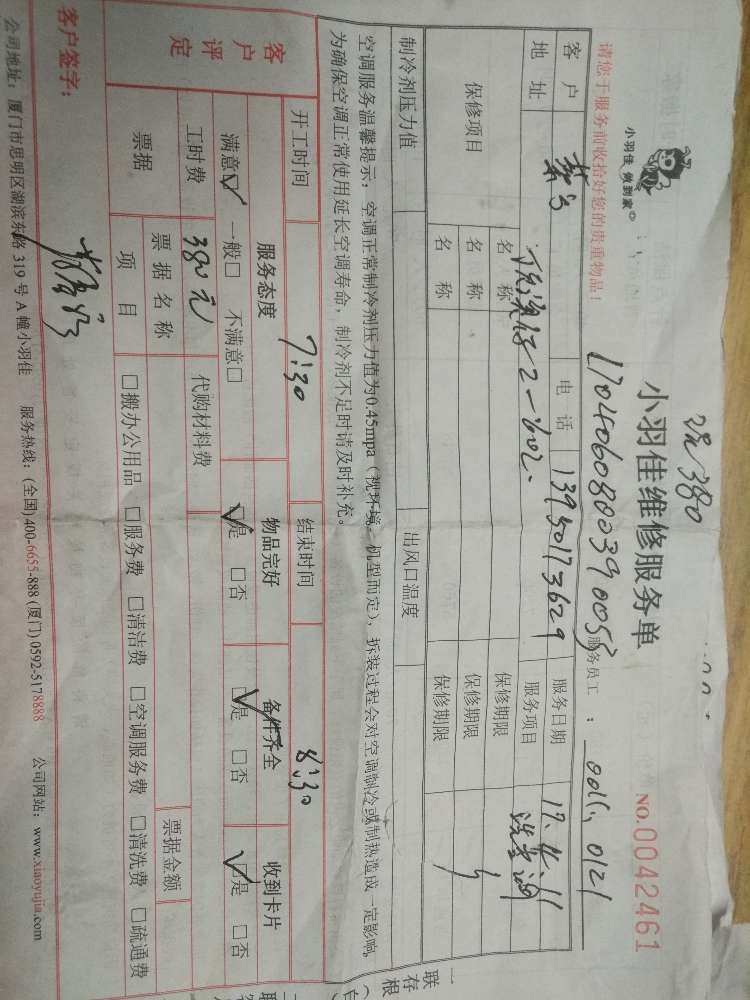 现380
小羽佳 做到家
小羽佳维修服务单
NO.0042461
1704060800390053
服务员工：0011、0121
请您于服务前收拾好您的贵重物品！
客户 电话 13950173629 服务日期
地址 2-1602. 服务项目 洗空调
保修项目 名称 保修期限
名称 保修期限
名称 保修期限
制冷剂压力值 出风口温度
空调服务温馨提示：空调正常制冷剂压力值为0.45mpa（视环境、机型而定），拆装过程会对空调制冷或制热造成一定影响。
为确保空调正常使用延长空调寿命，制冷剂不足时请及时补充。
开工时间 7:30 结束时间 8:30
客户评定 服务态度 物品完好 备件齐全 收到卡片
满意☑ 一般□ 不满意□ ☑是 □否 ☑是 □否 ☑是 □否
工时费 380元 代购材料费
票据 票据名称 票据金额
项目 □搬办公用品 □服务费 □清洁费 □空调服务费 □清洗费 □疏通费
客户签字：
公司地址：厦门市思明区湖滨东路 319 号 A 幢小羽佳 服务热线：(全国)400-6655-888 (厦门) 0592-5178888 公司网站：www.xiaoyujia.com
一联（白
存根